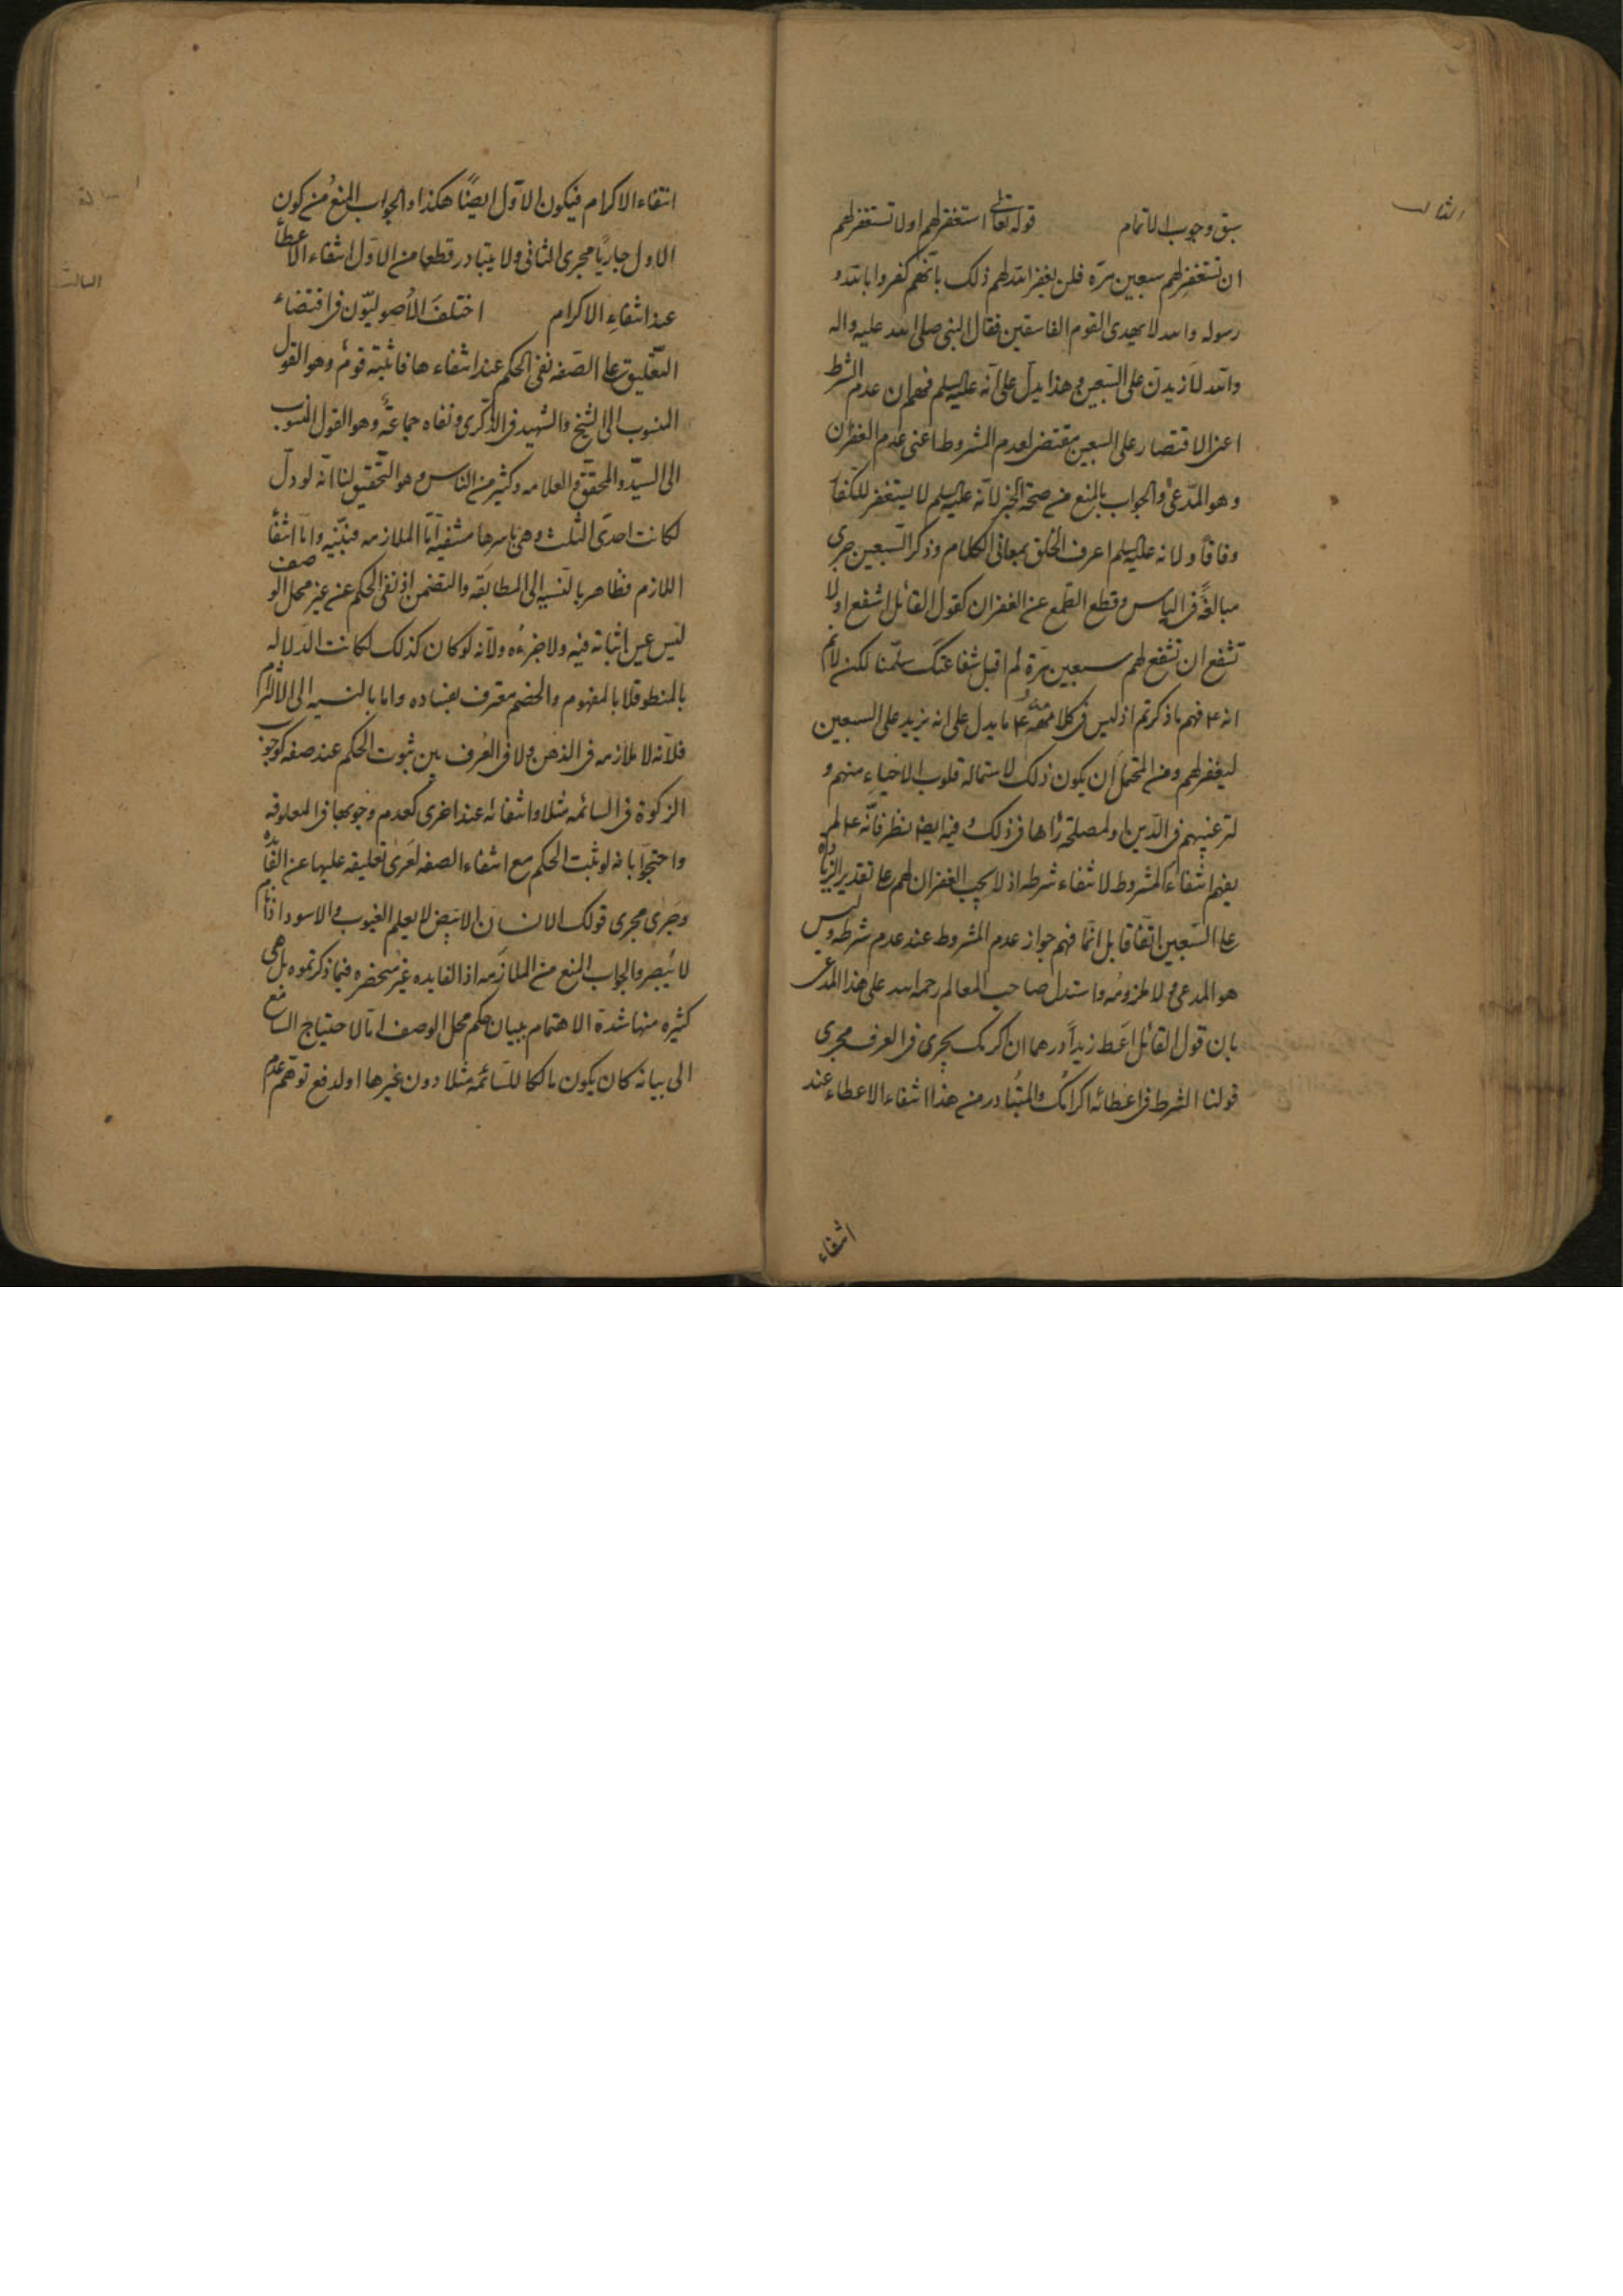 الثالث
سبق وجوب الاتمام قوله تعالى استغفر لهم اولا تستغفر لهم
ان تستغفر لهم سبعين مرّة فلن يغفر الله لهم ذلك بانّهم كفروا بالله و
رسوله والله لا يهدى القوم الفاسقين فقال النبى صلى الله عليه واله
والله لازيدنّ على السّبعين وهذا يدلّ على انّه عليه السلم فهم ان عدم الشرط
اعنى الاقتصار على السبعين مقتض لعدم المشروط اعنى عدم الغفران
وهو المدّعى والجواب بالمنع من صحة الخبر لانّه عليه السلم لا يستغفر للكفّا
وفاقاً ولانه عليه السلم اعرف الخلق بمعانى الكلام وذكر السّبعين جرى
مبالغةً فى الياس وقطع الطمع عن الغفران كقول القائل اشفع اولا
تشفع ان تشفع لهم سبعين مرّة لم اقبل شفاعتك سلّمنا لكن لا نم
انه ع فهم ما ذكرتم اذ ليس فى كلامه ع ما يدل على انه يزيد على السبعين
ليغفر لهم ومن المحتمل ان يكون ذلك لاستمالة قلوب الاحياء منهم و
لترغيبهم فى الدّين او لمصلحة رأها فى ذلك وفيه ايضا نظر فانّه ع لم
يفهم انتفاء المشروط لانتفاء شرطه اذ لا يجب الغفران لهم على تقدير الزياده
على السّبعين اتّفاقا بل انّما فهم جواز عدم المشروط عند عدم شرطه وليس
هو المدعى ولا ملزومه واستدل صاحب المعالم رحمه الله على هذا المدعى
بان قول القائل اعط زيداً درهما ان اكرمك يجرى فى العرف مجرى
قولنا الشرط فى اعطائه اكرامك والمتبادر من هذا انتفاء الاعطاء عند
انتفاء
انتفاء الاكرام فيكون الاوّل ايضًا هكذا والجواب المنع من كون
الاول جاريًا مجرى الثانى ولا يتبادر قطعا من الاوّل انتفاء الاعطأ
عند انتفاءِ الاكرام اختلفَ الاُصوليّون فى اقتضاء
التّعليق على الصّفه نفى الحكم عند انتفاءها فاثبته قومٌ وهو القول
المنسوب الى الشيخ والشهيد فى الذّكرى ونفاه جماعةٌ وهو القول المنسوب
الى السيّد والمحقّق والعلامه وكثير من الناس وهو التّحقيق لنا انّه لو دلّ
لكانت احدى الثلث وهى باسرها منتفيه امّا الملازمه فبيّنه وامّا انتفأ
اللازم فظاهر بالنّسبه الى المطابقه والتضمن اذ نفى الحكم عن غير محل الوصف
ليس عين اثباته فيه ولا جزءه ولانّه لو كان كذلك لكانت الدّلاله
بالمنطوق لا بالمفهوم والخصم معترف بفساده واما بالنسبه الى الالتزام
فلانّه لا ملازمه فى الذهن ولا فى العُرف بين ثبوت الحكم عند صفه كوجوب
الزكوة فى السائمه مثلا وانتفائه عند اخرى كعدم وجوبها فى المعلوفه
واحتجّوا بانه لو ثبت الحكم مع انتفاء الصفه لعَرى تعليقه عليها عن الفائده
وجرى مجرى قولك الانسان الابيَض لا يعلم الغيوب والاسود اذا نام
لا يُبصر والجواب المنع من الملازَمه اذ الفايده غير منحصره فيما ذكرتموه بل هى
كثيره منها شدة الاهتمام ببيان حكم محل الوصف امّا لاحتياج السامع
الى بيانه كان يكون مالكا للسّائمه مثلا دون غيرها او لدفع توهّم عدم
الثالث